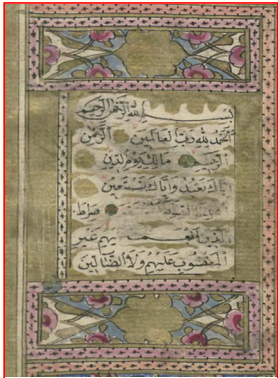 بسم الله الرحمن الرحيم
الحمد لله رب العالمين الرحمن
الرحيم مالك يوم الدين
اياك نعبد واياك نستعين
صراط
الذين انعمت عليهم غير
المغضوب عليهم ولا الضالين